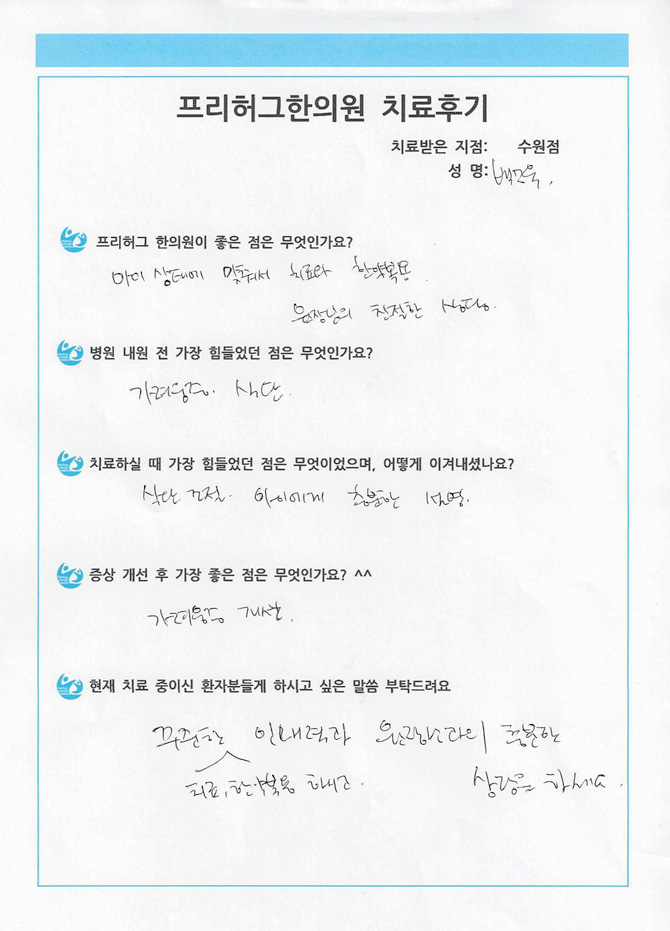 프리허그한의원 치료후기
치료받은 지점: 수원점
성 명:
프리허그 한의원이 좋은 점은 무엇인가요?
아이 상태에 맞춰서 치료와 한약복용.
원장님의 친절한 상담.
병원 내원 전 가장 힘들었던 점은 무엇인가요?
가려움증. 식단.
치료하실 때 가장 힘들었던 점은 무엇이었으며, 어떻게 이겨내셨나요?
식단 조절. 아이에게 충분한 설명.
증상 개선 후 가장 좋은 점은 무엇인가요? ^^
가려움증 개선.
현재 치료 중이신 환자분들게 하시고 싶은 말씀 부탁드려요
꾸준한 인내력과 원장님과의 충분한
치료, 한약복용 하시고. 상담을 하세요.